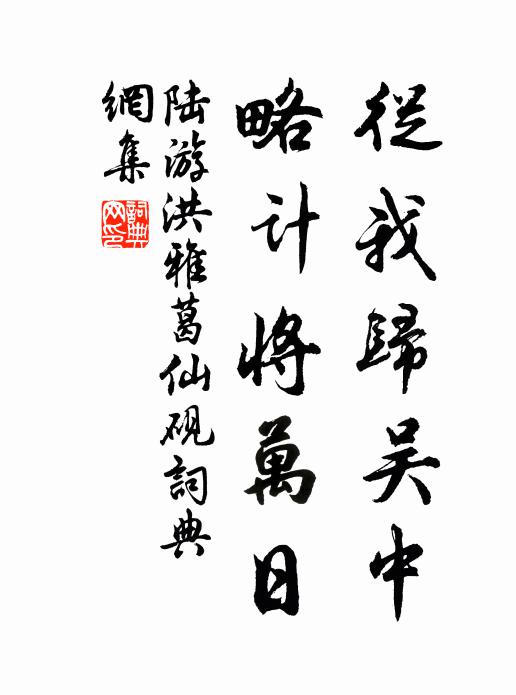 從我歸吴中
略计將萬日
陆游洪雅葛仙砚詞典
網集
詞典
网印